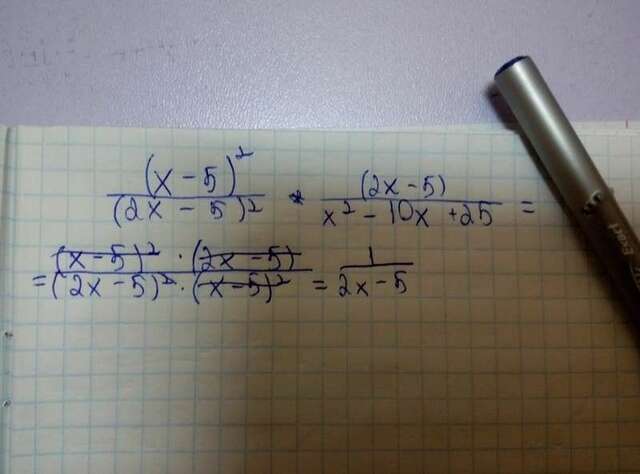 (x-5)²/(2x-5)² · (2x-5)/(x²-10x+25) =
= (x-5)²·(2x-5)/(2x-5)²·(x-5)² = 1/(2x-5)